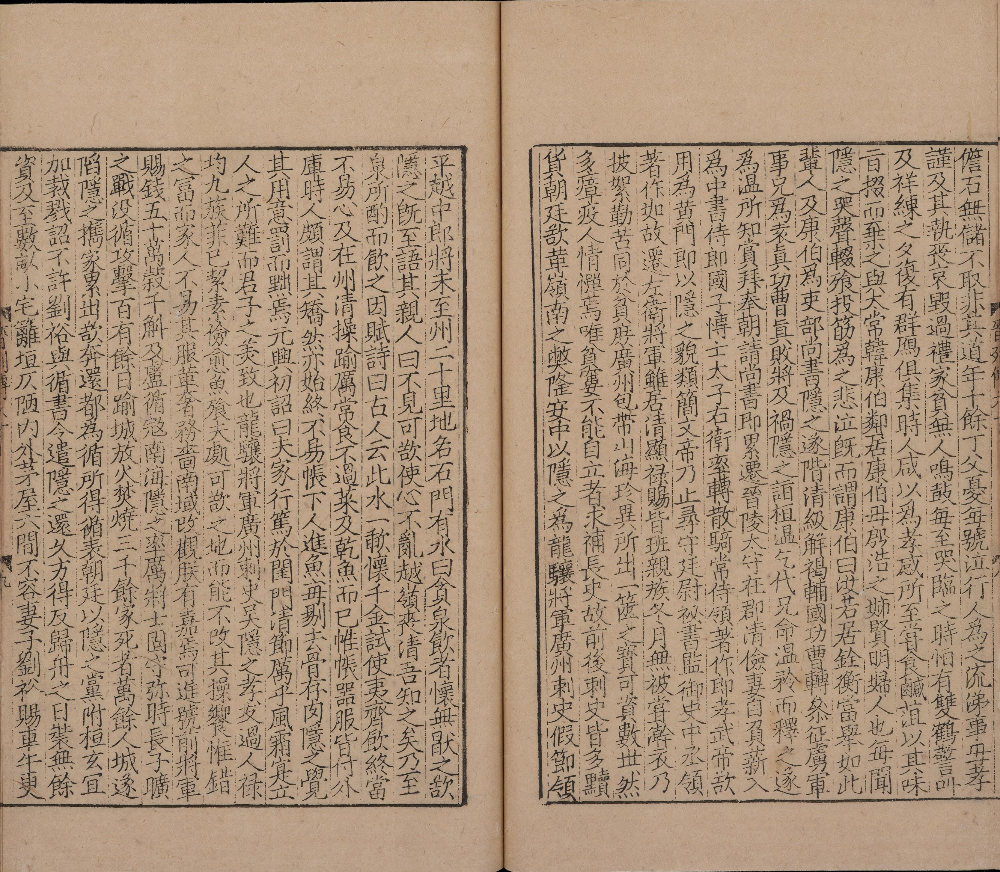 儋石無儲不取非其道年十餘丁父憂每號泣行人為之流涕事母孝
謹及其執喪哀毀過禮家貧無人鳴鼓每至哭臨之時恒有雙鶴警叫
及祥練之夕復有群鴈俱集時人咸以為孝感所至嘗食鹹菹以其味
旨掇而棄之與太常韓康伯鄰居康伯母殷浩之姊賢明婦人也每聞
隱之哭聲輟飡投筯為之悲泣既而謂康伯曰汝若居銓衡當舉如此
輩人及康伯為吏部尚書隱之遂階清級解褐輔國功曹轉參征虜軍
事兄為袁真功曹真敗將及禍隱之詣桓溫乞代兄命溫矜而釋之遂
為溫所知賞拜奉朝請尚書郎累遷晉陵太守在郡清儉妻自負薪入
為中書侍郎國子博士太子右衛率轉散騎常侍領著作郎孝武帝欲
用為黃門郎以隱之貌類簡文帝乃止尋守廷尉祕書監御史中丞領
著作如故還左衛將軍雖居清顯祿賜皆班親族冬月無被嘗澣衣乃
披絮勤苦同於貧庶廣州包帶山海珍異所出一篋之寶可資數世然
多瘴疫人情憚焉唯貧窶不能自立者求補長史故前後刺史皆多黷
貨朝廷欲革嶺南之弊隆安中以隱之為龍驤將軍廣州刺史假節領
平越中郎將未至州二十里地名石門有水曰貪泉飲者懷無猒之欲
隱之既至語其親人曰不見可欲使心不亂越嶺喪清吾知之矣乃至
泉所酌而飲之因賦詩曰古人云此水一歃懷千金試使夷齊飲終當
不易心及在州清操踰厲常食不過菜及乾魚而已帷帳器服皆付外
庫時人頗謂其矯然亦始終不易帳下人進魚每剔去骨存肉隱之覺
其用意罰而黜焉元興初詔曰夫家行篤於閨門清節厲乎風霜是立
人之所難而君子之美致也龍驤將軍廣州刺史吳隱之孝友過人祿
均九族菲己絜素儉愈魚飡夫處可欲之地而能不改其操饗惟錯
之富而家人不易其服革奢務嗇南域改觀朕有嘉焉可進號前將軍
賜錢五十萬穀千斛及盧循寇南海隱之率厲將士固守弥時長子曠
之戰沒循攻擊百有餘日踰城放火焚燒三千餘家死者萬餘人城遂
陷隱之攜家累出欲奔還都為循所得循表朝廷以隱之黨附桓玄宜
加裁戮詔不許劉裕與循書令遣隱之還久方得反歸舟之日裝無餘
資及至數畝小宅籬垣仄陋內外茅屋六間不容妻子劉裕賜車牛更